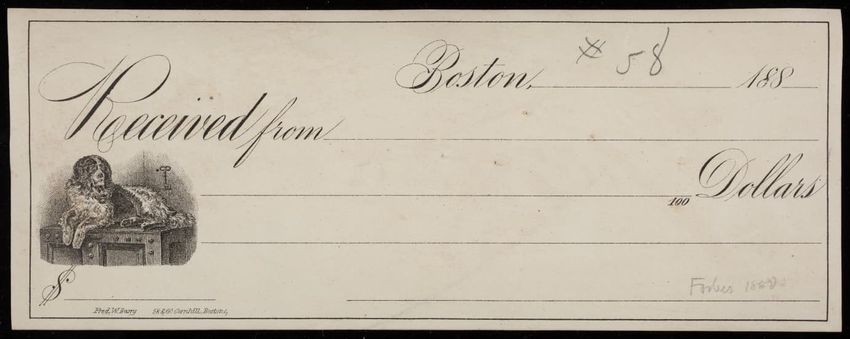 Boston, # 58 188
Received from
100 Dollars
$
Fred. W. Barry 58 & 60 Cornhill, Boston,
Forbes 1880